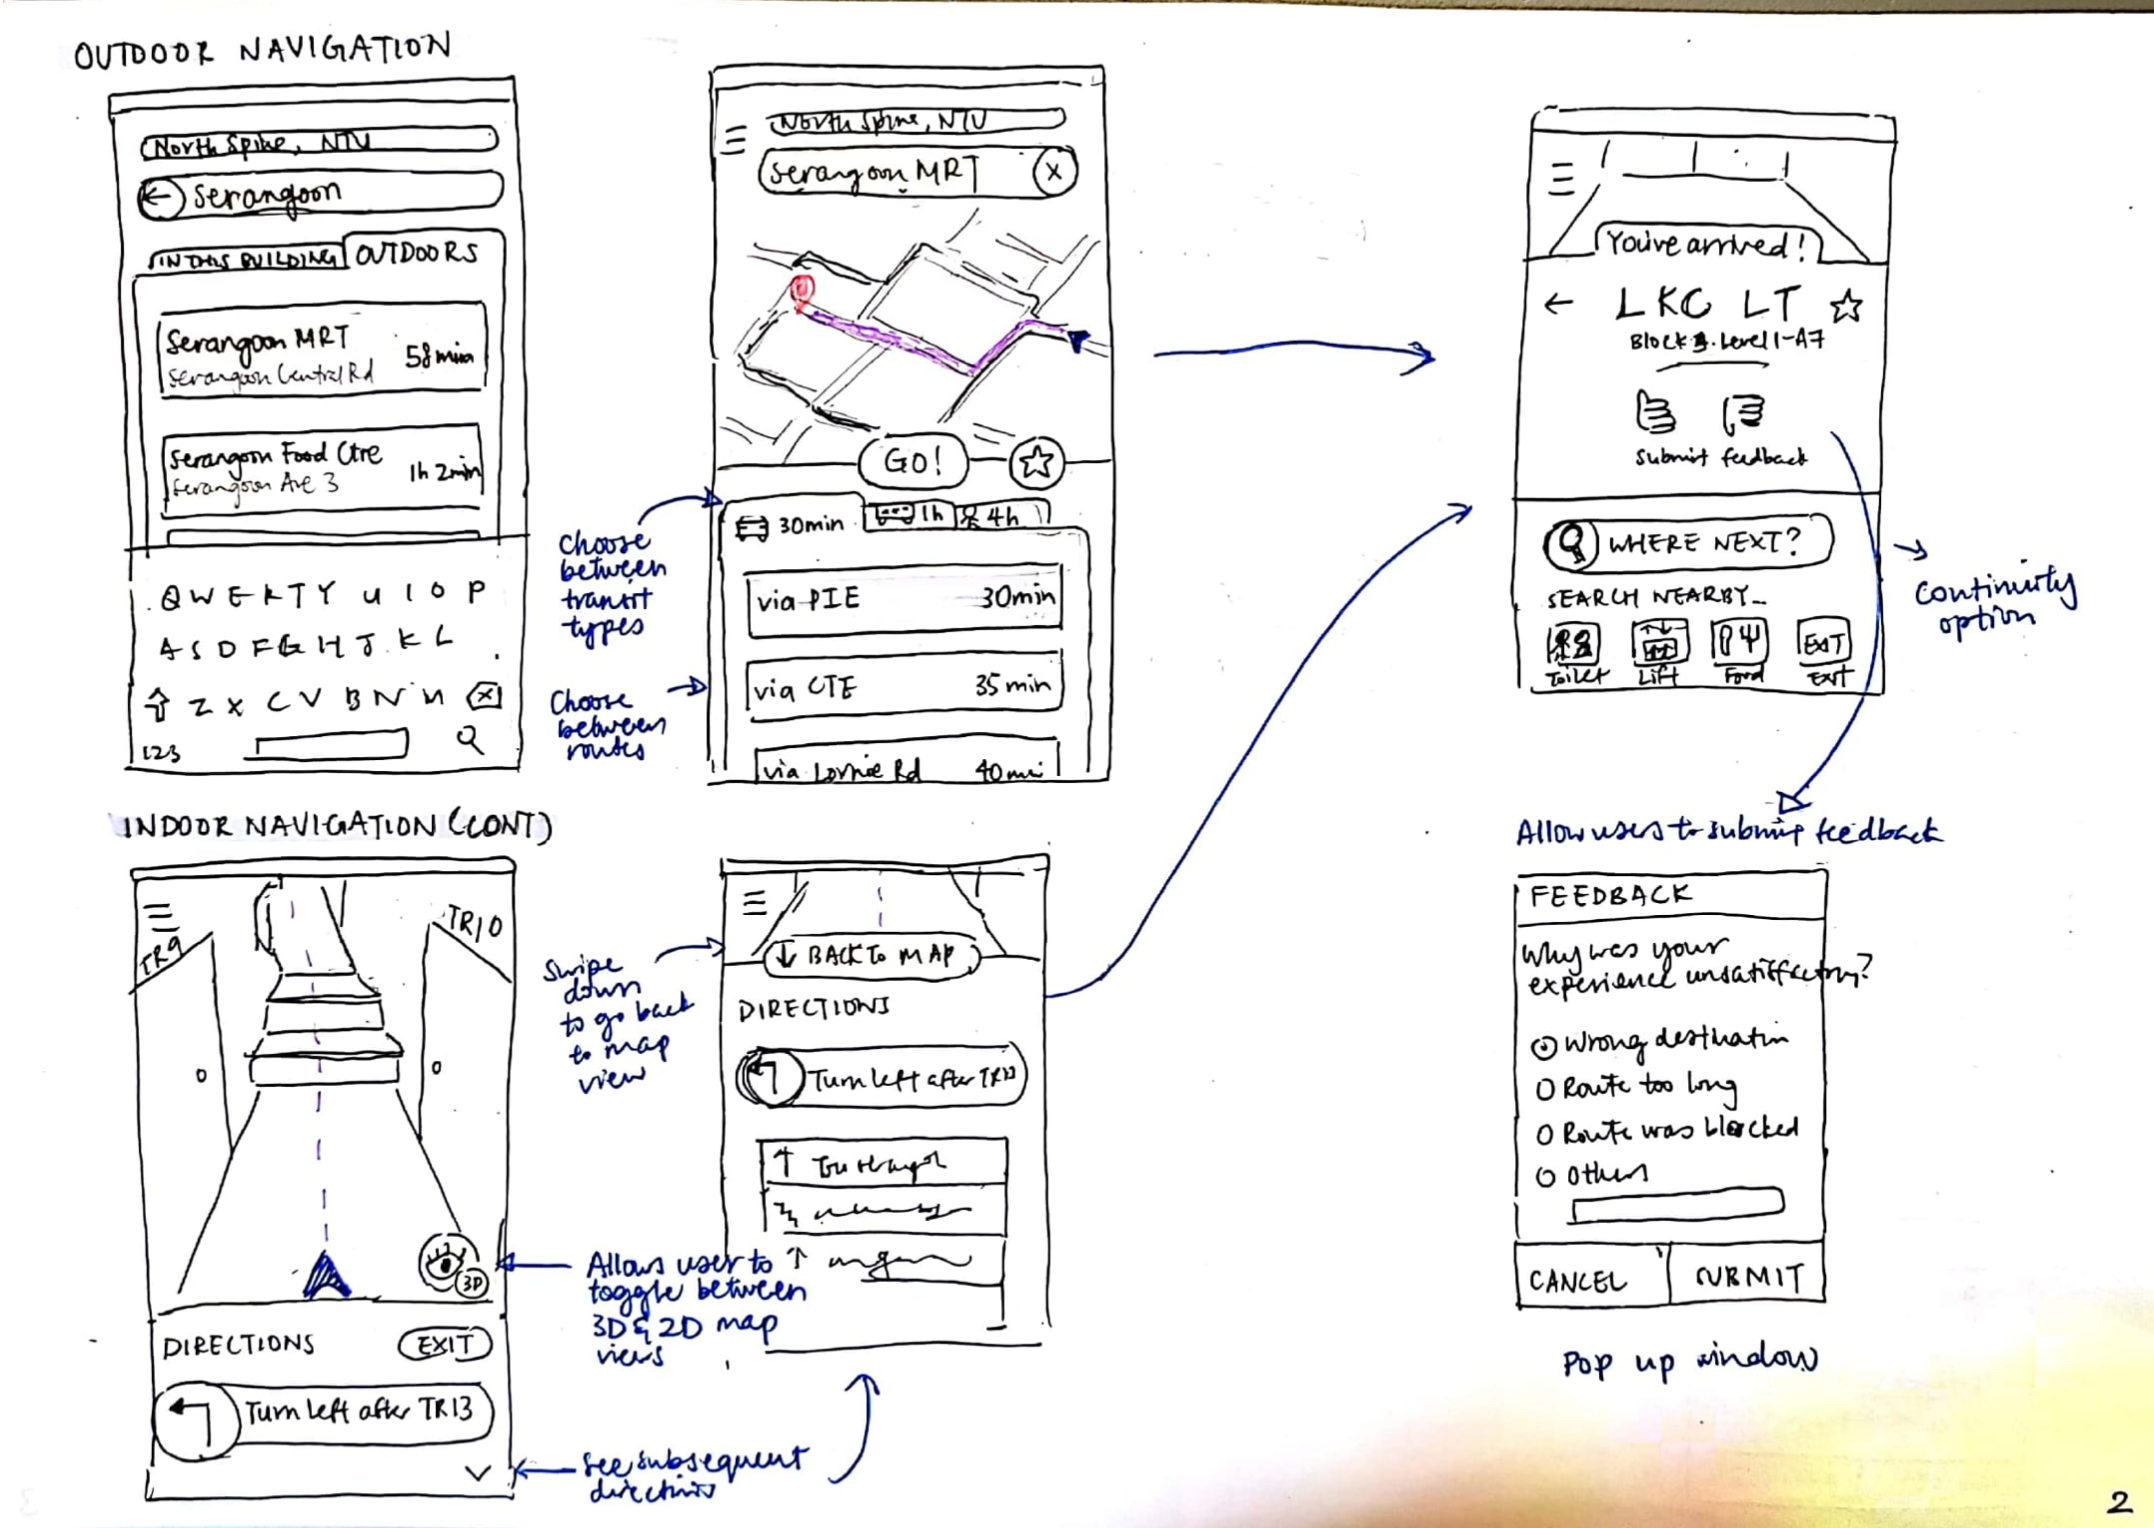 OUTDOOR NAVIGATION
North Spine, NTU
Serangoon
IN THIS BUILDING
OUTDOORS
Serangoon MRT
Serangoon Central Rd
58min
Serangoon Food Ctre
Serangoon Ave 3
1h 2min
Q W E R T Y U I O P
A S D F G H J K L
Z X C V B N M
123
North Spine, NTU
Serangoon MRT
X
GO!
30min
1h
4h
via PIE 30min
via CTE 35min
via Lornie Rd
Choose
between
transit
types
Choose
between
routes
You've arrived!
LKC LT
Level 1-A7
submit feedback
WHERE NEXT?
SEARCH NEARBY...
Toilet
Lift
Food
EXIT
Exit
Continuity
option
Allow users to submit feedback
FEEDBACK
Why was your
experience unsatisfactory?
Wrong destination
Route too long
Route was blocked
Others
CANCEL
SUBMIT
Pop up window
INDOOR NAVIGATION (CONT)
TR9
TR10
3D
DIRECTIONS
EXIT
Turn left after TR13
Swipe
down
to go back
to map
view
BACK TO MAP
DIRECTIONS
Turn left after TR13
Allows user to
toggle between
3D & 2D map
views
See subsequent
directions
2